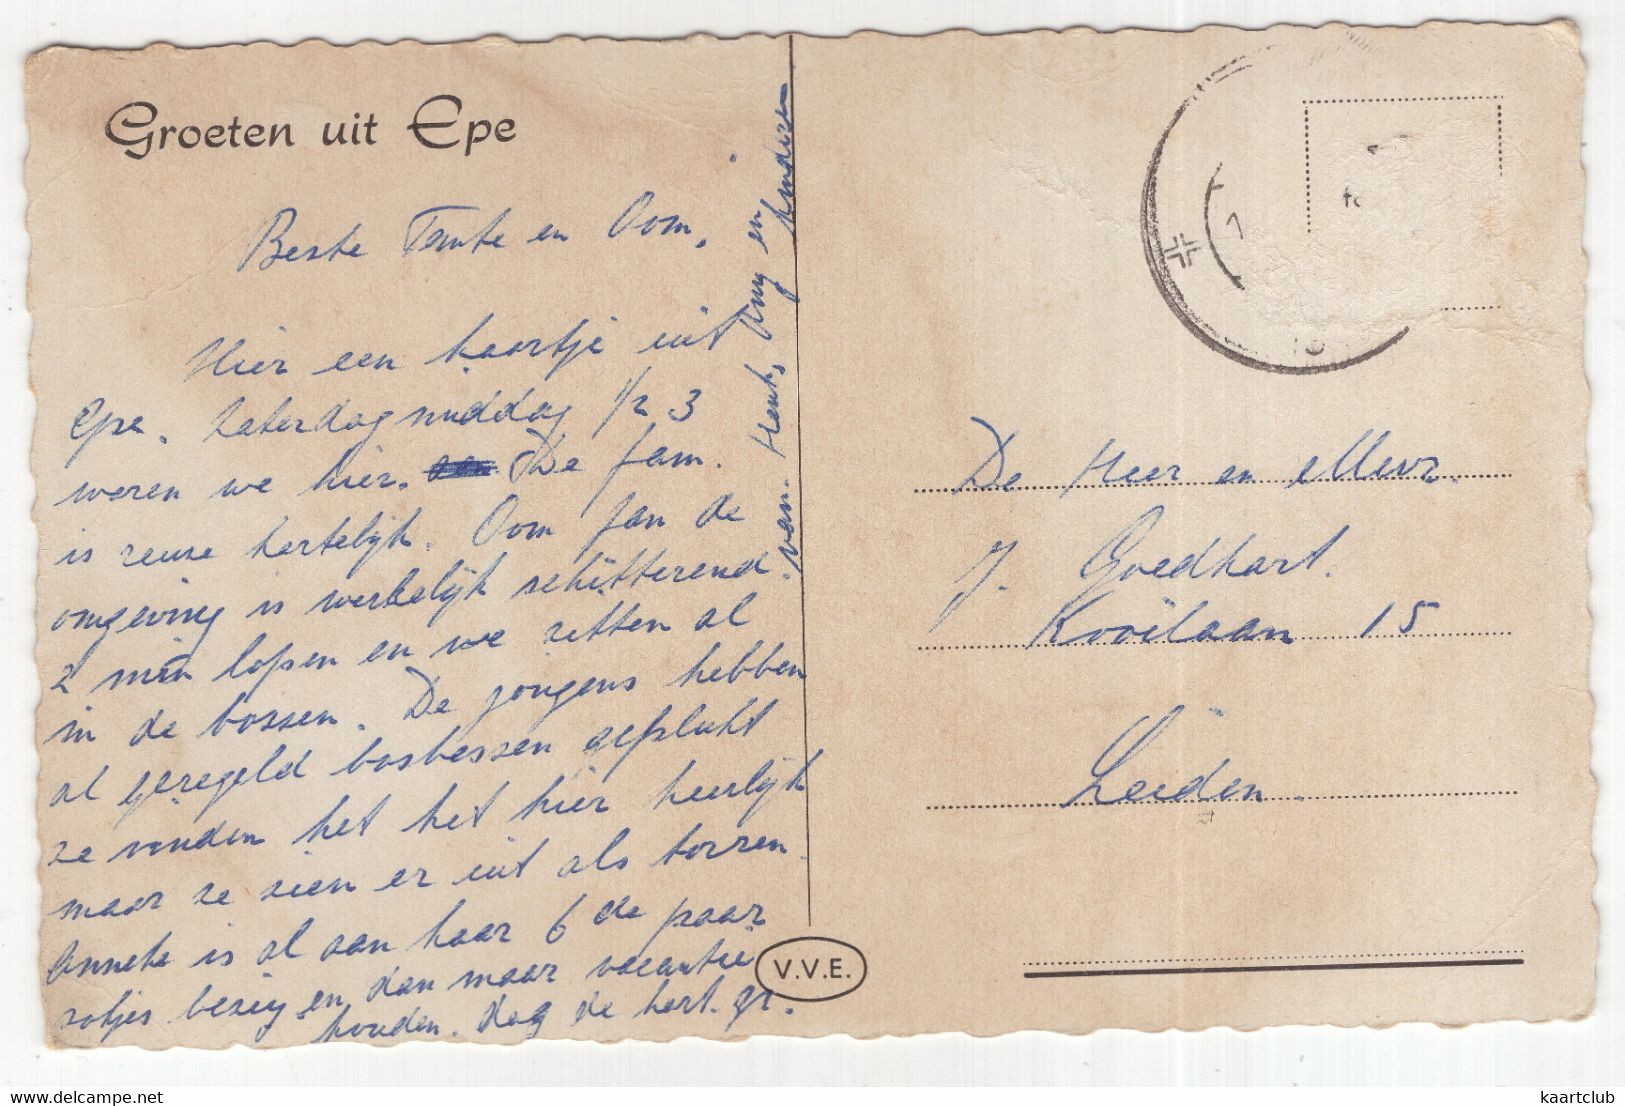 Groeten uit Epe
Beste Tante en Oom,
Hier een kaartje uit
Epe. Zaterdagmiddag 1/2 3
waren we hier. De fam.
is reuze hartelijk. Oom Jan de
omgeving is werkelijk schitterend.
2 min lopen en we zitten al
in de bossen. De jongens hebben
al geregeld bosbessen geplukt
ze vinden het het hier heerlijk
maar ze zien er uit als torren.
Anneke is al aan haar 6 de paar
sokjes bezig en dan maar vacantie
houden. Dag de hart. gr.
van. Henk, Any en kinderen
V.V.E.
De Heer en Mevr.
J. Goedhart.
Kooilaan 15
Leiden.
kaartclub